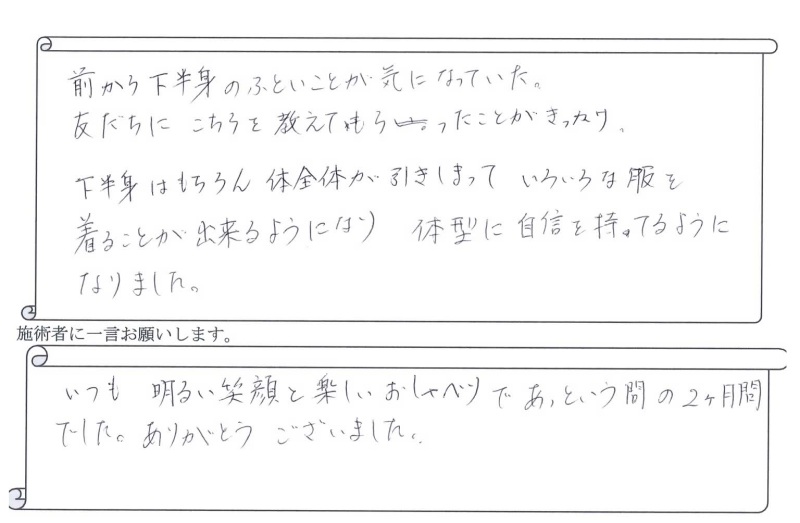 前から下半身のふといことが気になっていた。
友だちに こちらを教えてもらったことがきっかけ。
下半身はもちろん 体全体が引きしまって いろいろな服を
着ることが出来るようになり 体型に自信を持ってるように
なりました。
施術者に一言お願いします。
いつも 明るい笑顔と楽しいおしゃべりであっという間の2ヶ月間
でした。ありがとう ございました。